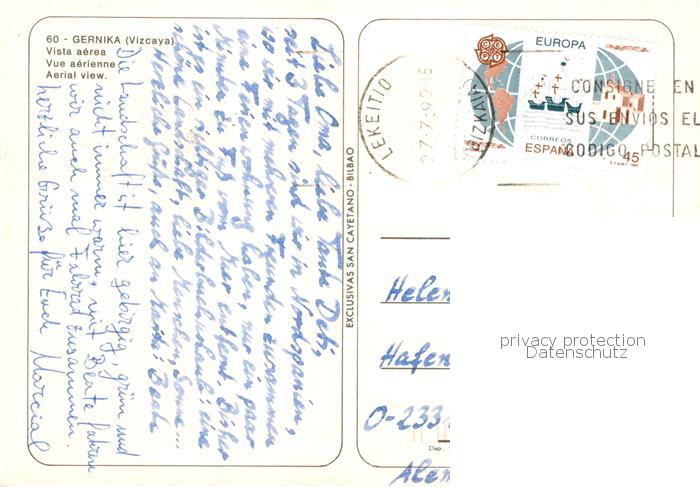 60 - GERNIKA (Vizcaya)
Vista aérea
Vue aérienne
Aerial view.
Liebe Oma, liebe Tante Deti,
seit 3 Tagen sind wir in Nordspanien,
wo wir mit anderen Freunden zusammen
eine Ferienwohnung haben, nur ein paar
Minuten zu Fuß vom Meer entfernt. Bisher
ist es ein richtiger Bilderbuchurlaub: eine
schöne Landschaft, liebe Menschen, Sonne...
Herzliche Grüße, auch an Beate
Die Landschaft ist hier gebirgig, grün und
nicht immer warm, mit Beate fahren
wir auch mal Fahrrad zusammen.
herzliche Grüße für Euch Marcial
EXCLUSIVAS SAN CAYETANO - BILBAO
EUROPA
CEPT
CORREOS
ESPAÑA
45
LEKEITIO
27.7.92
BIZKAIA
CONSIGNE EN
SUS ENVIOS EL
CODIGO POSTAL
Helen
Hafen
O-233
Alem
Dep.
privacy protection
Datenschutz